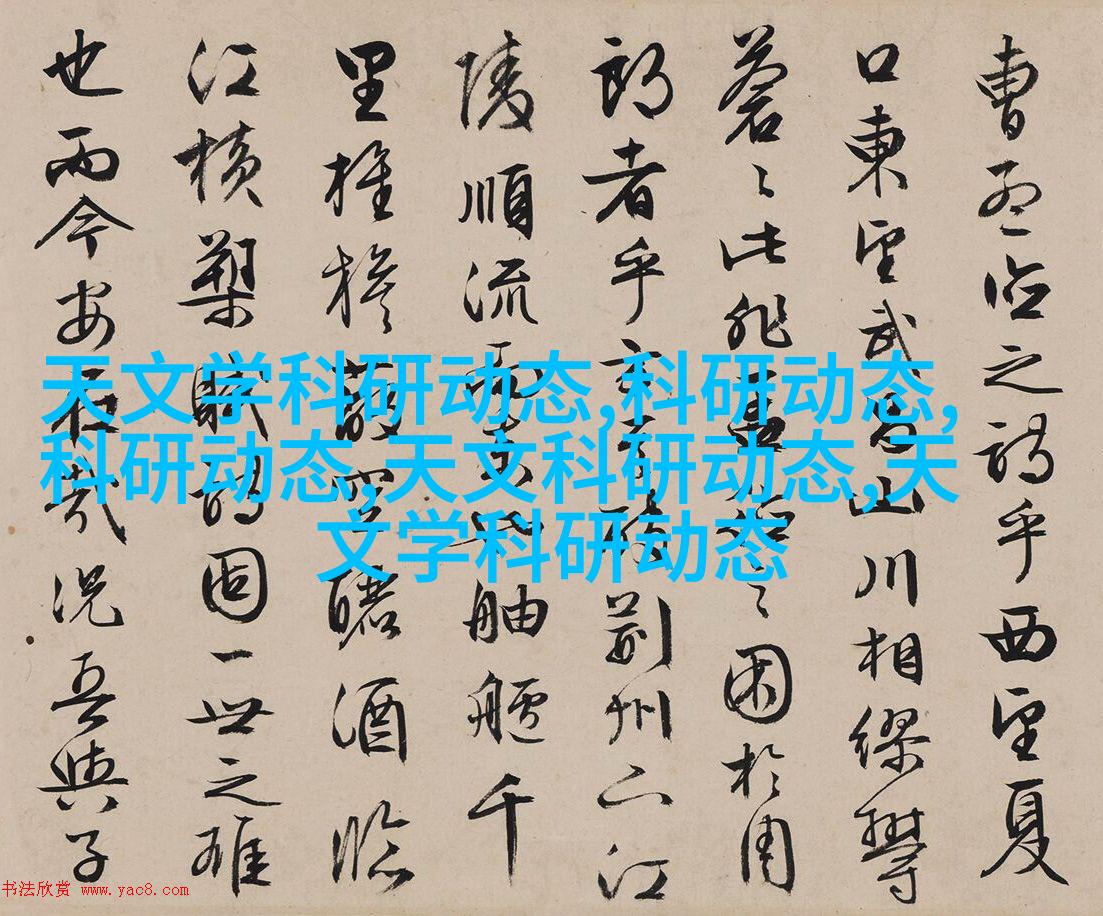 曹孟德之詩乎西望夏
口東望武昌山川相繆欝
蒼〻此非孟德之困於周
郎者乎方其破荊州下江
陵順流而東也舳艫千
里旌旗蔽空釃酒臨
江橫槊賦詩固一世之雄
也而今安在哉況吾與子
天文学科研动态,科研动态,
科研动态,天文科研动态,天
文学科研动态
书法欣赏 www.yac8.com